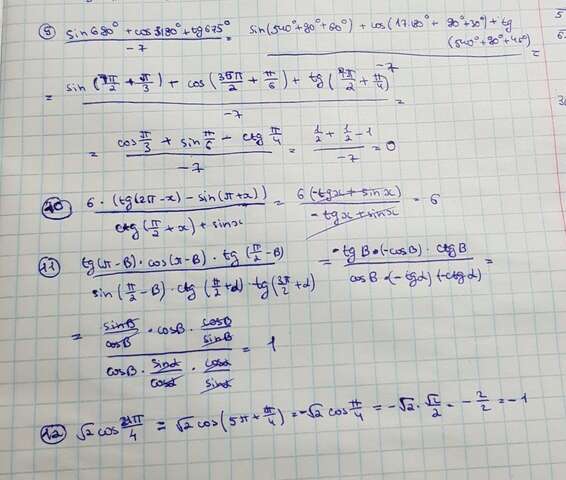 8) (sin680° + cos3180° + tg675°)/(-7) = (sin(540°+80°+60°) + cos(17·180°+80°+30°) + tg(540°+80°+45°))/(-7) =
= (sin(7π/2 + π/3) + cos(35π/2 + π/6) + tg(7π/2 + π/4))/(-7) =
= (cos π/3 + sin π/6 - ctg π/4)/(-7) = (1/2 + 1/2 - 1)/(-7) = 0
10) 6·(tg(2π-x) - sin(π+x))/(ctg(π/2+x) + sinx) = 6(-tgx + sinx)/(-tgx + sinx) = 6
11) (tg(π-β)·cos(π-β)·tg(π/2-β))/(sin(π/2-β)·ctg(π/2+α)·tg(3π/2+α)) = (-tgβ·(-cosβ)·ctgβ)/(cosβ·(-tgα)(-ctgα)) =
= (sinβ/cosβ · cosβ · cosβ/sinβ)/(cosβ · sinα/cosα · cosα/sinα) = 1
12) √2 cos 21π/4 = √2 cos(5π + π/4) = -√2 cos π/4 = -√2 · √2/2 = -2/2 = -1